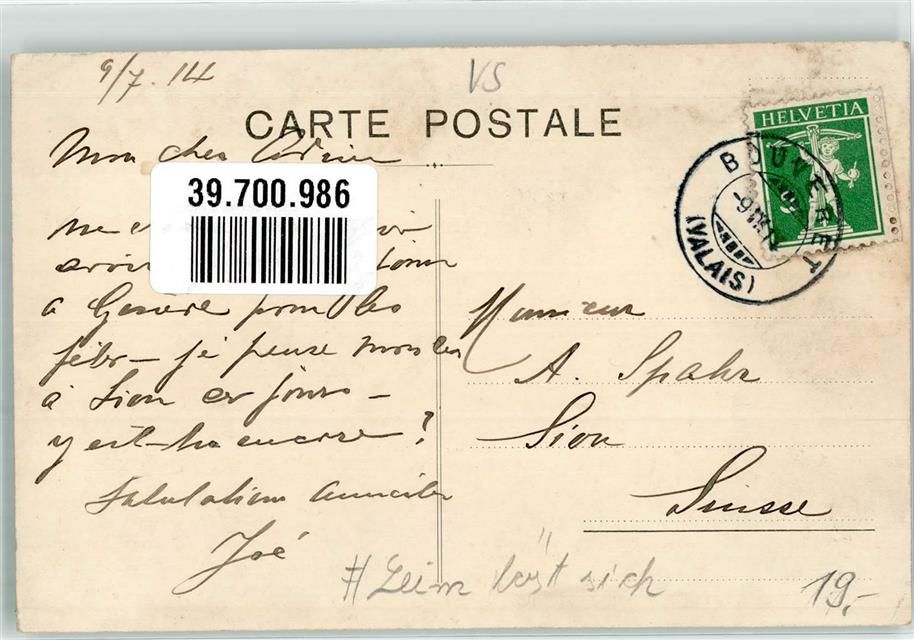 9/7. 14
VS
CARTE POSTALE
HELVETIA
BOUVERET
(VALAIS)
Mon cher
39.700.986
à Genève pour les
fêtes – je pense monter
à Sion ces jours –
y est-tu encore ?
Salutations amicales
José
Monsieur
A. Spahr
Sion
Suisse
# Leim löst sich
19,-